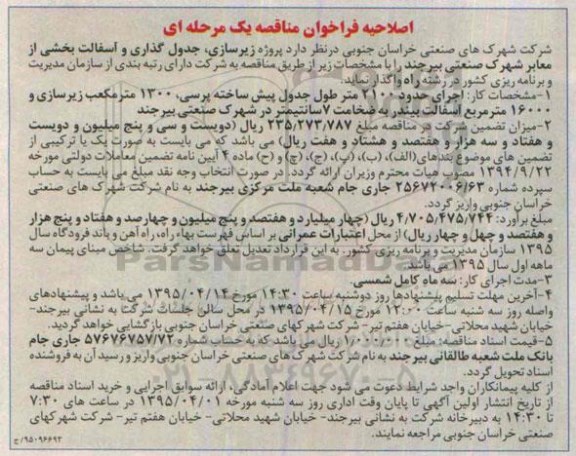 اصلاحیه فراخوان مناقصه یک مرحله ای
شرکت شهرک های صنعتی خراسان جنوبی درنظر دارد پروژه زیرسازی، جدول گذاری و آسفالت بخشی از
معابر شهرک صنعتی بیرجند را با مشخصات زیر از طریق مناقصه به شرکت دارای رتبه بندی از سازمان مدیریت
و برنامه ریزی کشور در رشته راه واگذار نماید.
۱-مشخصات کار: اجرای حدود ۲۱۰۰ متر طول جدول پیش ساخته پرسی، ۱۳۰۰ مترمکعب زیرسازی و
۱۶۰۰۰ مترمربع آسفالت بیندر به ضخامت ۷سانتیمتر در شهرک صنعتی بیرجند
۲-میزان تضمین شرکت در مناقصه مبلغ ۲۳۵/۲۷۳/۷۸۷ ریال (دویست و سی و پنج میلیون و دویست
و هفتاد و سه هزار و هفتصد و هشتاد و هفت ریال) می باشد که می بایست به صورت یک یا ترکیبی از
تضمین های موضوع بندهای (الف)، (ب)، (پ)، (ج)، (چ) و (ح) ماده ۴ آیین نامه تضمین معاملات دولتی مورخه
۱۳۹۴/۹/۲۲ مصوب هیات محترم وزیران ارائه گردد. در صورت انتخاب وجه نقد مبلغ می بایست به حساب
سپرده شماره ۲۵۶۷۲۰۰۶/۶۳ جاری جام شعبه ملت مرکزی بیرجند به نام شرکت شهرک های صنعتی
خراسان جنوبی واریز گردد.
مبلغ برآورد: ۴/۷۰۵/۴۷۵/۷۴۴ ریال (چهار میلیارد و هفتصد و پنج میلیون و چهارصد و هفتاد و پنج هزار
و هفتصد و چهل و چهار ریال) از محل اعتبارات عمرانی بر اساس فهرست بهاء راه، راه آهن و باند فرودگاه سال
۱۳۹۵ سازمان مدیریت و برنامه ریزی کشور. به این قرارداد تعدیل تعلق خواهد گرفت. شاخص مبنای پیمان سه
ماهه اول سال ۱۳۹۵ می باشد.
۳-مدت اجرای کار: سه ماه کامل شمسی.
۴-آخرین مهلت تسلیم پیشنهادها روز دوشنبه ساعت ۱۴:۳۰ مورخ ۱۳۹۵/۰۴/۱۴ می باشد و پیشنهادهای
واصله روز سه شنبه ساعت ۱۲:۰۰ مورخ ۱۳۹۵/۰۴/۱۵ در محل سالن جلسات شرکت به نشانی بیرجند-
خیابان شهید محلاتی-خیابان هفتم تیر- شرکت شهرکهای صنعتی خراسان جنوبی بازگشایی خواهد گردید.
۵-قیمت اسناد مناقصه: مبلغ ۱/۰۰۰/۰۰۰ ریال می باشد که به حساب شماره ۵۷۶۷۶۷۵۷/۷۲ جاری جام
بانک ملت شعبه طالقانی بیرجند به نام شرکت شهرک های صنعتی خراسان جنوبی واریز و رسید آن به فروشنده
اسناد تحویل گردد.
از کلیه پیمانکاران واجد شرایط دعوت می شود جهت اعلام آمادگی، ارائه سوابق اجرایی و خرید اسناد مناقصه
از تاریخ انتشار اولین آگهی تا پایان وقت اداری روز سه شنبه مورخه ۱۳۹۵/۰۴/۰۱ در ساعت های ۷:۳۰
تا ۱۴:۳۰ به دبیرخانه شرکت به نشانی بیرجند- خیابان شهید محلاتی- خیابان هفتم تیر- شرکت شهرکهای
صنعتی خراسان جنوبی مراجعه نمایند.
۹۵۰۹۶۶۹۲/ج
ParsNamadData
۰۲۱-۸۸۳۴۹۶۷۰-۵